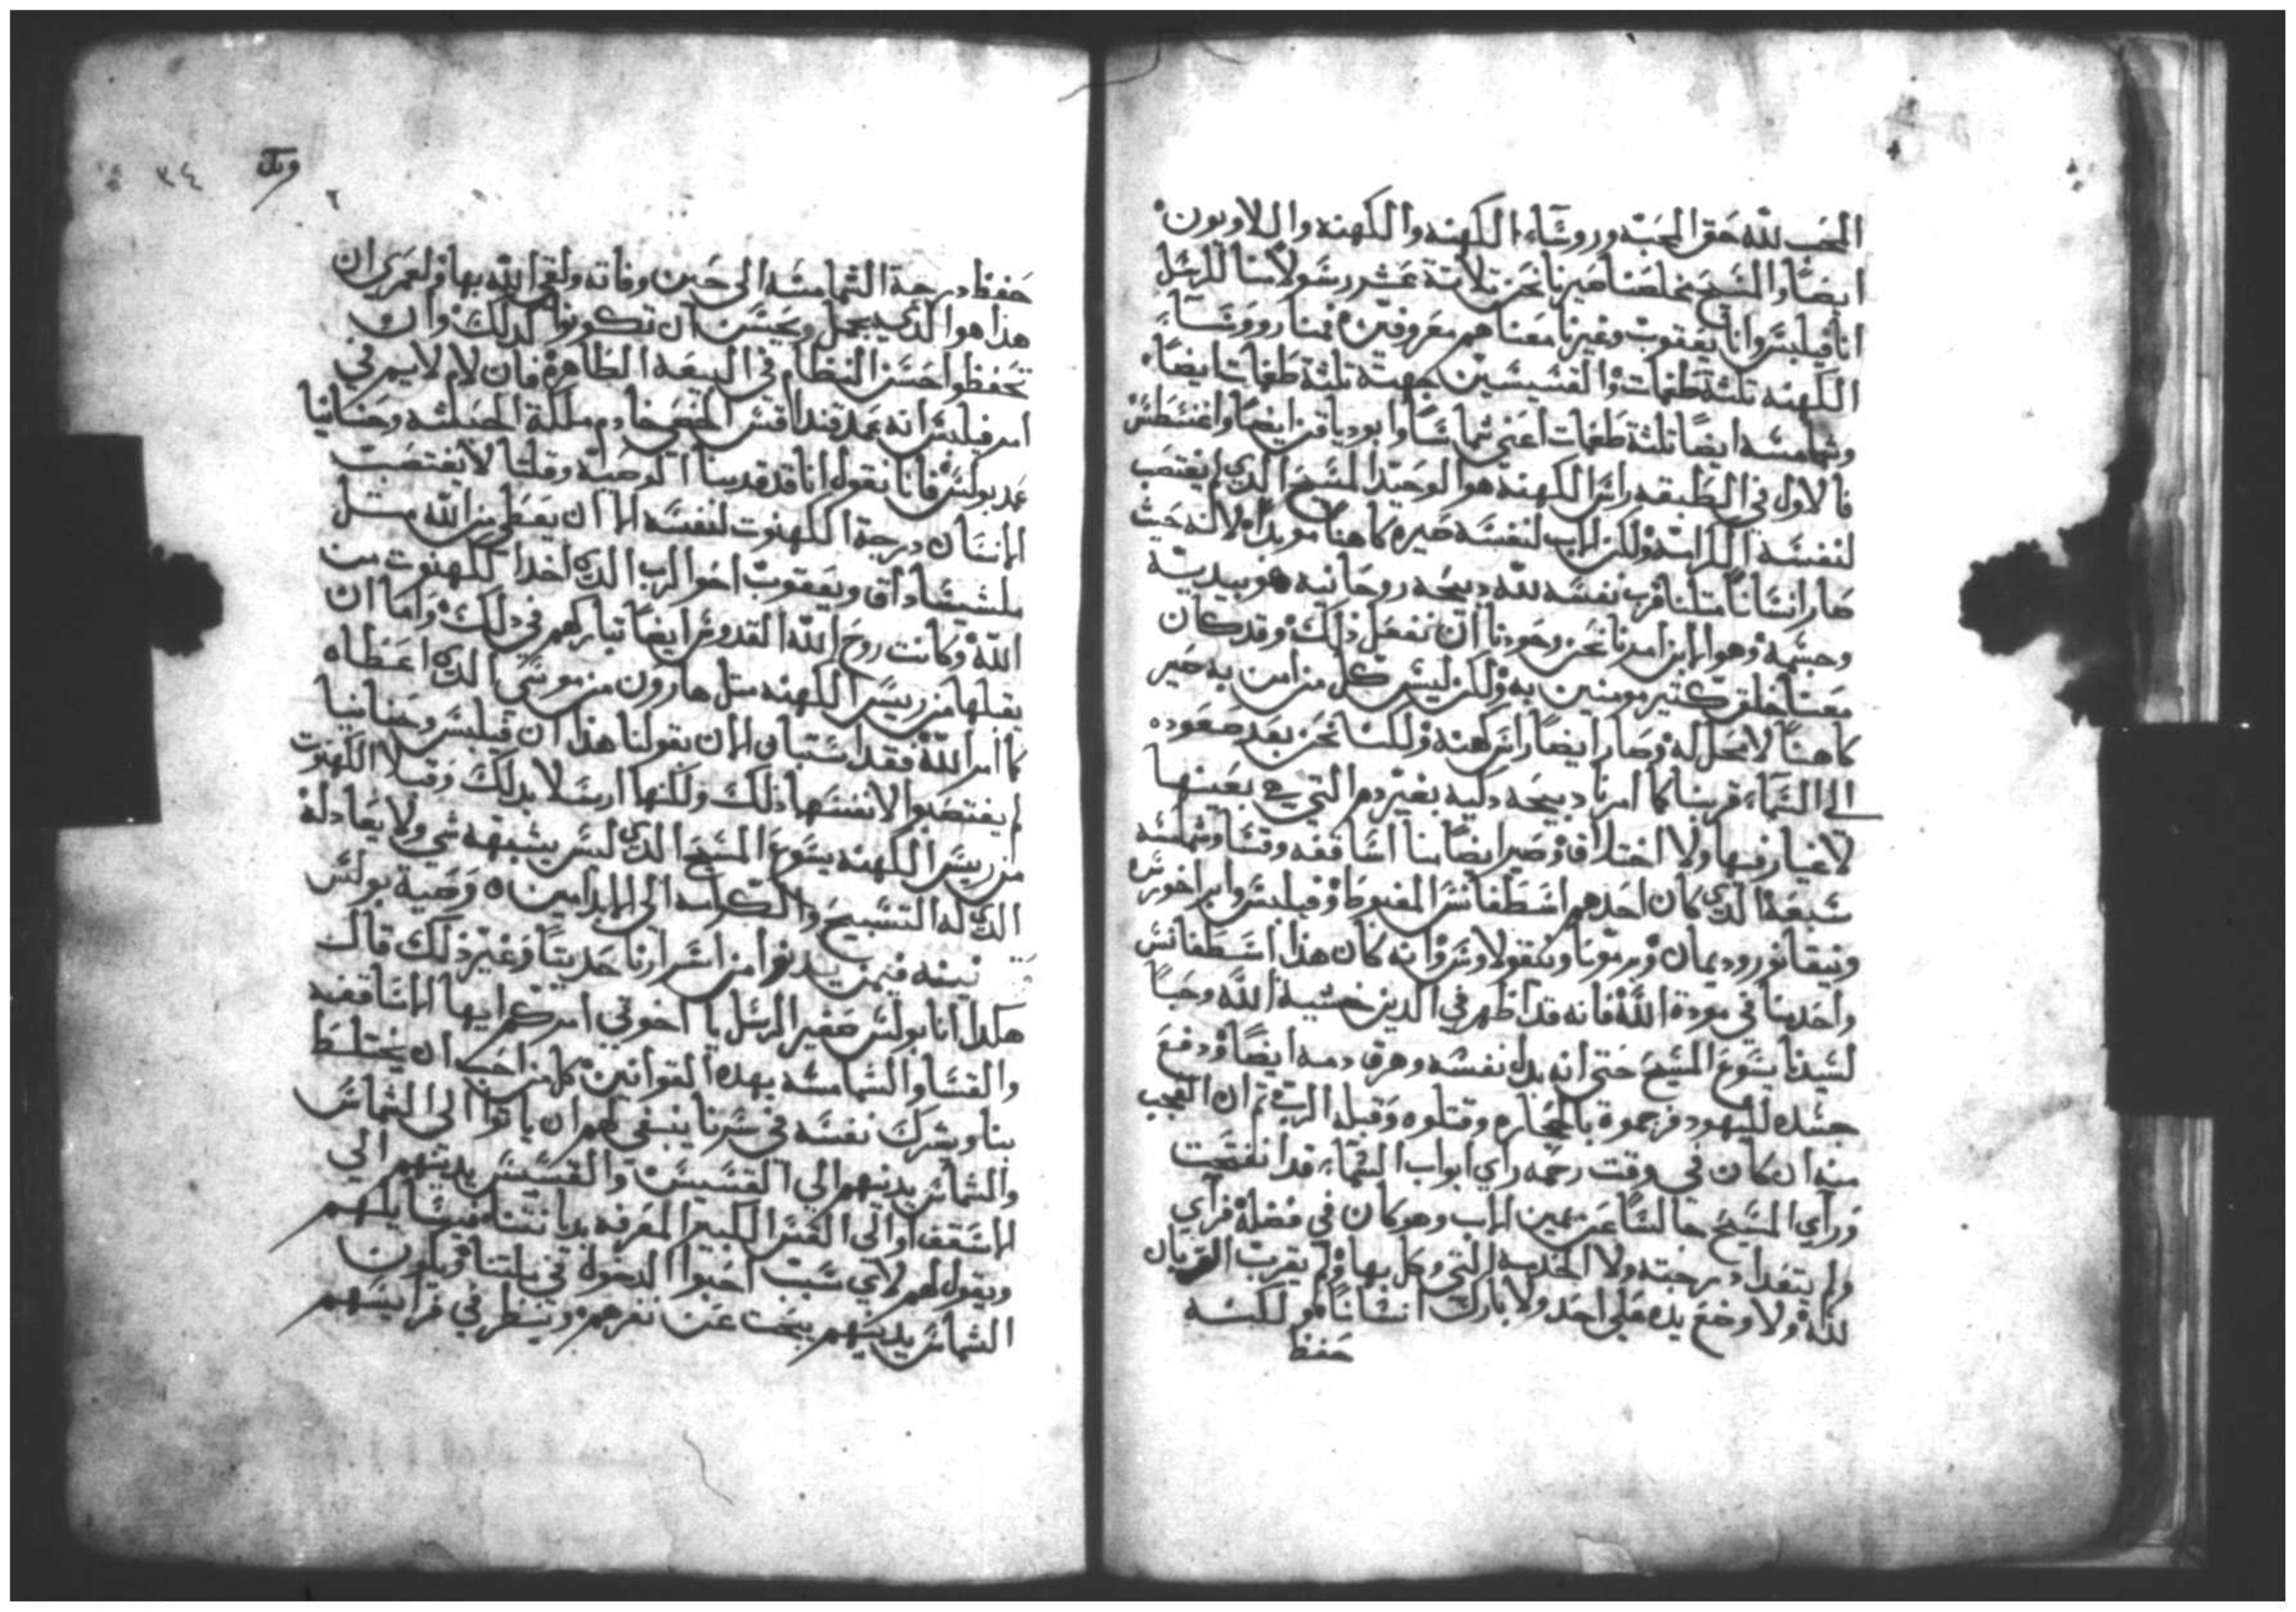 المحب لله حق المحبه وروساء الكهنه والكهنه واللاويون
ايضا والمسيح مخلصنا صيرنا نحن ثلاثة عشر رسولا منا للرسل
انا فيلبس وانا يعقوب وغيرنا معنا هم معروفين فمنا رووسا
الكهنه تلتة طغمات والقسيسين جهتة تلتة طغمات ايضا
وشمامسه ايضا تلتة طغمات اعني شماسا وابودياقن ايضا واغنسطس
فالاول في الطبقه راس الكهنة هو الوحيد المسيح الدي لم يغتصب
لنفسه الكرامه ولكن الاب لنفسه صيره كاهنا موبدا لانه حيث
صار انسانا متلنا قرب نفسه لله دبيحه روحانيه هو بيديه
وجسمه وهو الابن امرنا نحن وحودنا ان نفعل ذلك وقد كان
معنا خلق كتير مومنين به ولكن ليس كل من امن به صير
كاهنا لا محل له وصار ايضا راس كهنه ولكننا نحن بعد صعوده
الى السماء قربنا كما امرنا دبيحه دكيه بغير دم التي هي بعينها
لاغيار فيها ولا اختلاف وصير ايضا منا اساقفه وقسا وشمامسه
سبعة الدي كان احدهم اسطفانس المغبوط وفيلبس وابراخورس
ونيقانور وديمان وبرمونا ونيقولاوس وانه كان هذا اسطفانس
واحد منا في مودة الله فانه قد اظهر في الدين خشية الله وحبا
لسيدنا يسوع المسيح حتى انه بدل نفسه وهرق دمه ايضا ودفع
جسده لليهود فرجموة بالحجاره وقتلوه وقبله الرب تم ان العجب
منه ان كان في وقت رجمه راي ابواب السماء قد انفتحت
وراي المسيح جالسا عن يمين الاب وهو كان في فضلة فراي
ولم يتعدا درجته ولا الخدمه التي وكل بها ولم يقرب القربان
لله ولا وضع يده على احد ولا بارك انسانا هو لكنه
حفظ
٣٤
حفظ درجة الشمامسه الى حين وفاته ولقي الله بها ولعمري ان
هدا هو الدي يجمل ويحسن ان تكونوا كدلك وان
تحفظوا حسن النظام في البيعه الطاهرة فان لام لايم في
امر فيلبس انه عمد قنداقس الخصي خادم ملكة الحبشه وحنانيا
عمد بولس فانا نقول انا قد قدمنا الوصية وقلنا لا يغتصب
الانسان درجة الكهنوت لنفسه الا ان يعطي من الله متل
ملشيساداق ويعقوب اخو الرب الدي اخد الكهنوت من
الله وكانت روح الله القدوس ايضا تباركهم في دلك واما ان
يقبلها من رييس الكهنه متل هارون من موسى الدي اعطاه
كما امر الله فقد استبان الان بقولنا هدا ان فيلبس وحنانيا
لم يغتصبوا لانفسهما ذلك ولكنهما ارسلا بدلك وقبلا الكهنوت
من رييس الكهنه يسوع المسيح الدي ليس يشبهه شي ولا يعادله
الدي له التسبيح والكرامه الى الابد امين وصية بولس
نبينه فيمن يدنوا من اسرارنا حديتا وغير ذلك قال
هكدا انا بولس صغير الرسل يا اخوتي امركم ايها الاساقفه
والقسا والشمامسه بهده القوانين كل من احب ان يختلط
بنا ويشرك نفسه في سرنا ينبغي لهم ان ياتوا الى الشماس
والشماس يدنيهم الي القسيس والقسيس يدنيهم الي
الاسقف او الى القس الكبير المعرفه بديانتنا فيسايلهم
ويقول لهم لاي سبب احبوا الدخول في ملتنا ويكون
الشماس يدنيهم يبحت عن نفرهم وينظر في فرايسهم